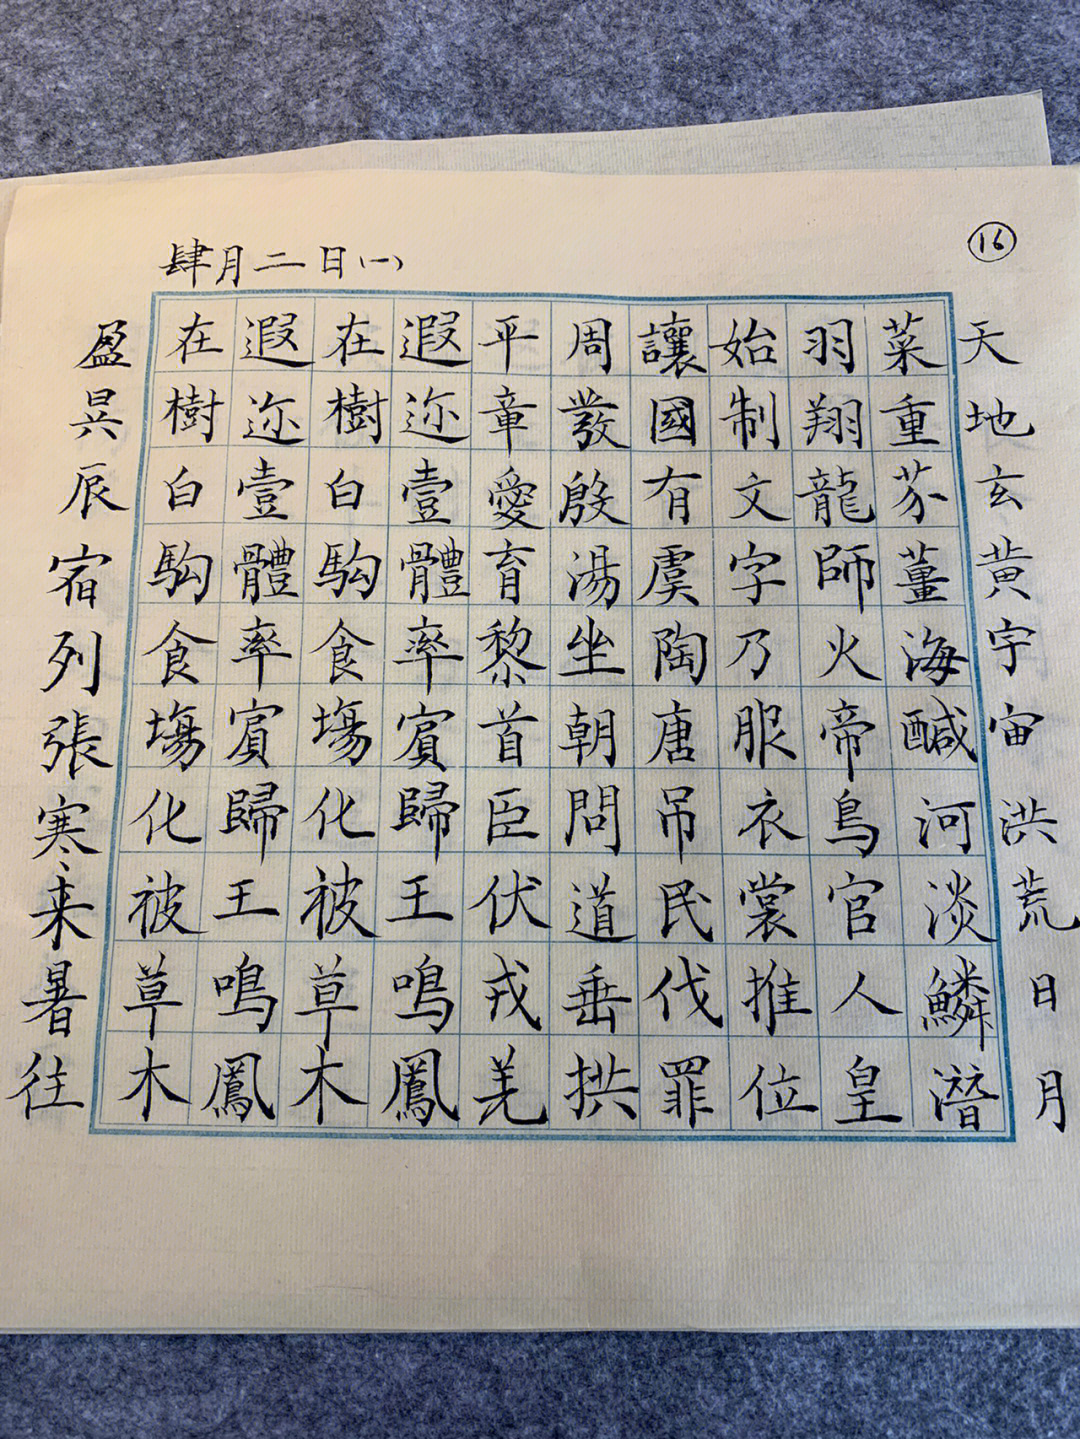 ⑯
肆月二日(一)
天地玄黄宇宙洪荒日月
菜重芥薑海醎河淡鱗潛
羽翔龍師火帝鳥官人皇
始制文字乃服衣裳推位
讓國有虞陶唐吊民伐罪
周發殷湯坐朝問道垂拱
平章愛育黎首臣伏戎羌
遐迩壹體率賓歸王鳴鳳
在樹白駒食塲化被草木
遐迩壹體率賓歸王鳴鳳
在樹白駒食塲化被草木
盈昃辰宿列張寒来暑往